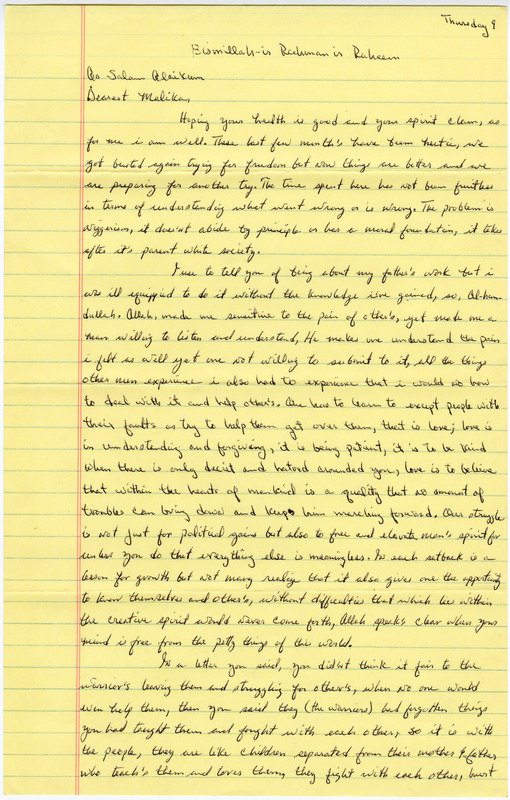 Thursday 9
Bismillah-ir Rachman ir Raheem
As Salam Alaikum
Dearest Malika,
Hoping your health is good and your spirit claim, as
for me i am well. These last few month's have been hectic, we
got busted again trying for freedom but now things are better and we
are preparing for another try. The time spent here has not been fruitless
in terms of understanding what went wrong or is wrong. The problem is
it does'nt abide by principle or has a moral foundation, it takes
after it's parent white society.
I use to tell you of being about my father's work but i
was ill equipped to do it without the knowledge i've gained, so, Al-hum
dullah. Allah, made me sensitive to the pain of other's, yet made me a
man willing to listen and understand, He makes me understand the pain
i felt as well yet one not willing to submit to it, all the things
other men experience i also had to experience that i would no how
to deal with it and help other's. One has to learn to except people with
their faults as try to help them get over them, that is love; love is
in understanding and forgiving, it is being patient, it is to be kind
when there is only deciet and hatord arounded you, love is to beleive
that within the hearts of mankind is a quality that no amount of
troubles can bring down and keeps him marching forward. Our struggle
is not just for political gains but also to free and elevate men's spirit for
unless you do that everything else is meaningless. In each setback is a
lesson for growth but not many realize that it also gives one the opportunity
to know themselves and other's, without difficulties that which lies within
the creative spirit would never come forth, Allah speak's clear when your
mind is free from the petty things of this world.
In a letter you said, you did'nt think it fair to the
warrior's leaving them and struggling for other's, when no one would
even help them, then you said they (the warriors) had forgotten things
you had taught them and fought with each other, so it is with
the people, they are like children separated from their mother & father
who teach's them and loves them, they fight with each other, hurt